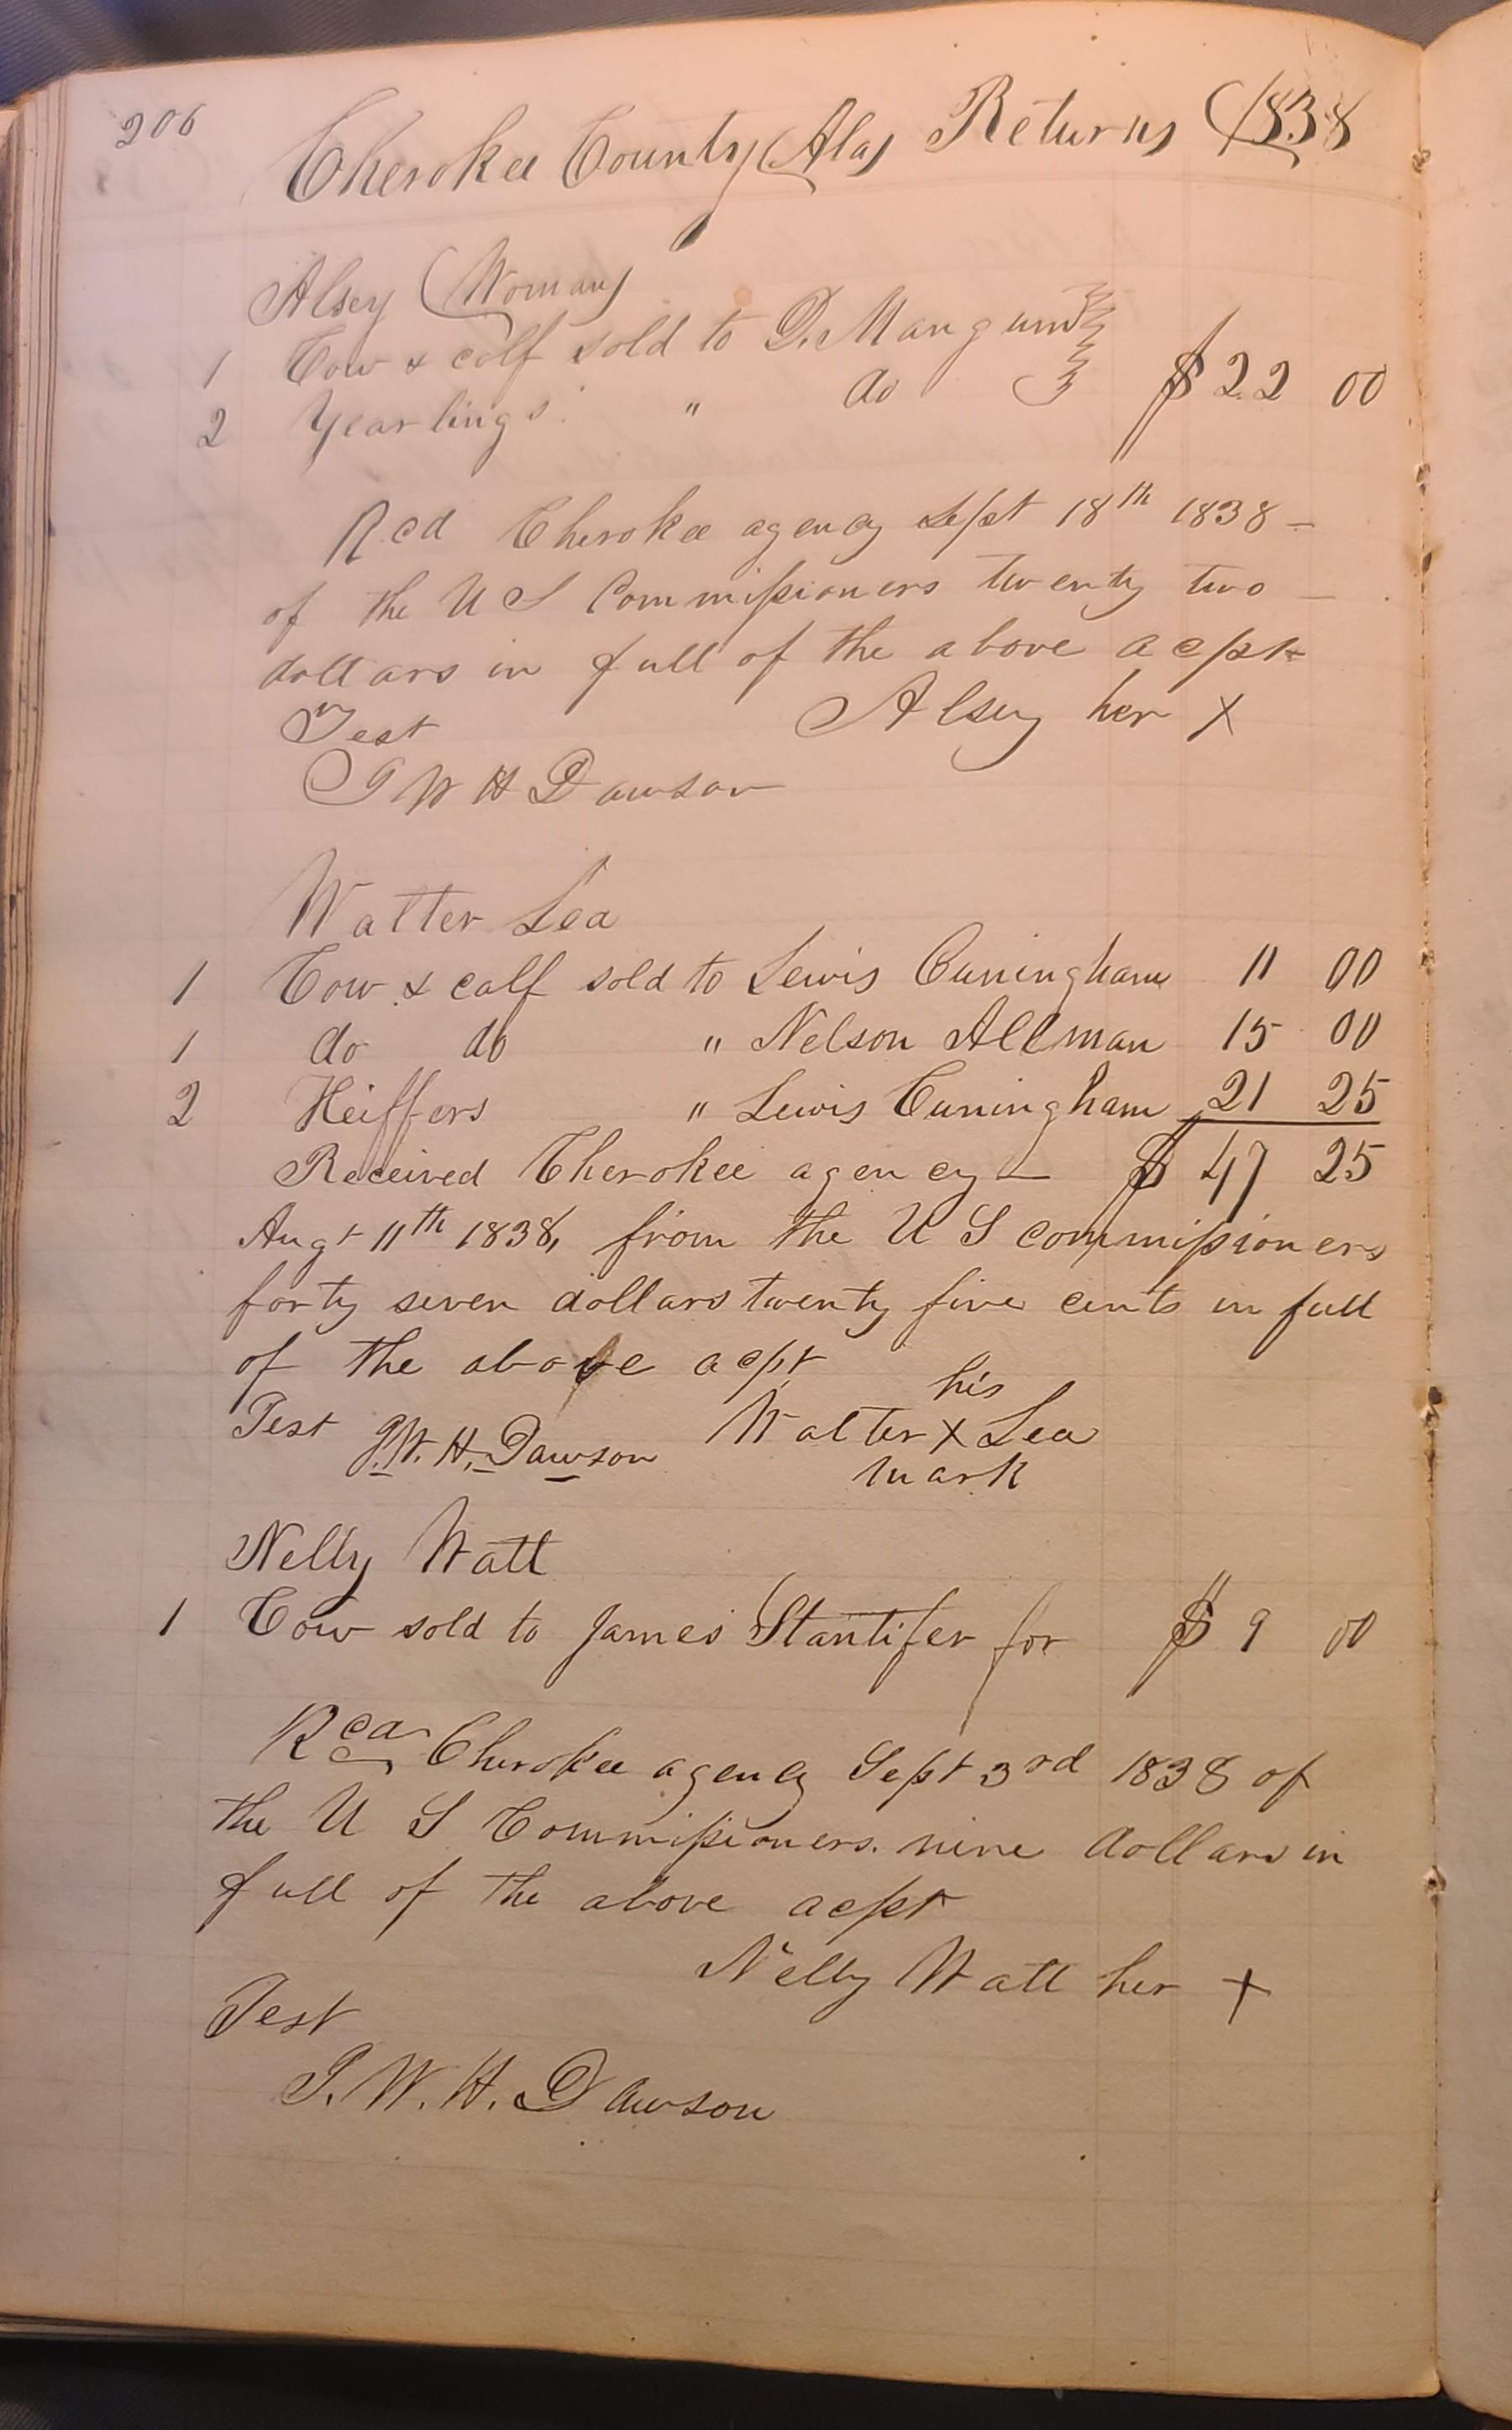 206
Cherokee County (Ala) Returns (1838
Alsey (Woman)
1 Cow & calf sold to D. Mangum
2 Yearlings " do $22 00
Rcd Cherokee agency Sept 18th 1838 –
of the U S Commissioners twenty two –
dollars in full of the above acpt
Test Alsey her X
J W H Dawson
Walter Lea
1 Cow & calf sold to Lewis Cuningham 11 00
1 do do " Nelson Allman 15 00
2 Heiffers " Lewis Cuningham 21 25
Received Cherokee agency – $ 47 25
Augt 11th 1838, from the U S commissioners
forty seven dollars twenty five cents in full
of the above acpt
his
Test J. W. H. Dawson Walter X Lea
mark
Nelly Watt
1 Cow sold to James Stantifer for $ 9 00
Rcd Cherokee agency Sept 3rd 1838 of
the U S Commissioners. nine dollars in
full of the above acpt
Nelly Watt her X
Test
J. W. H. Dawson